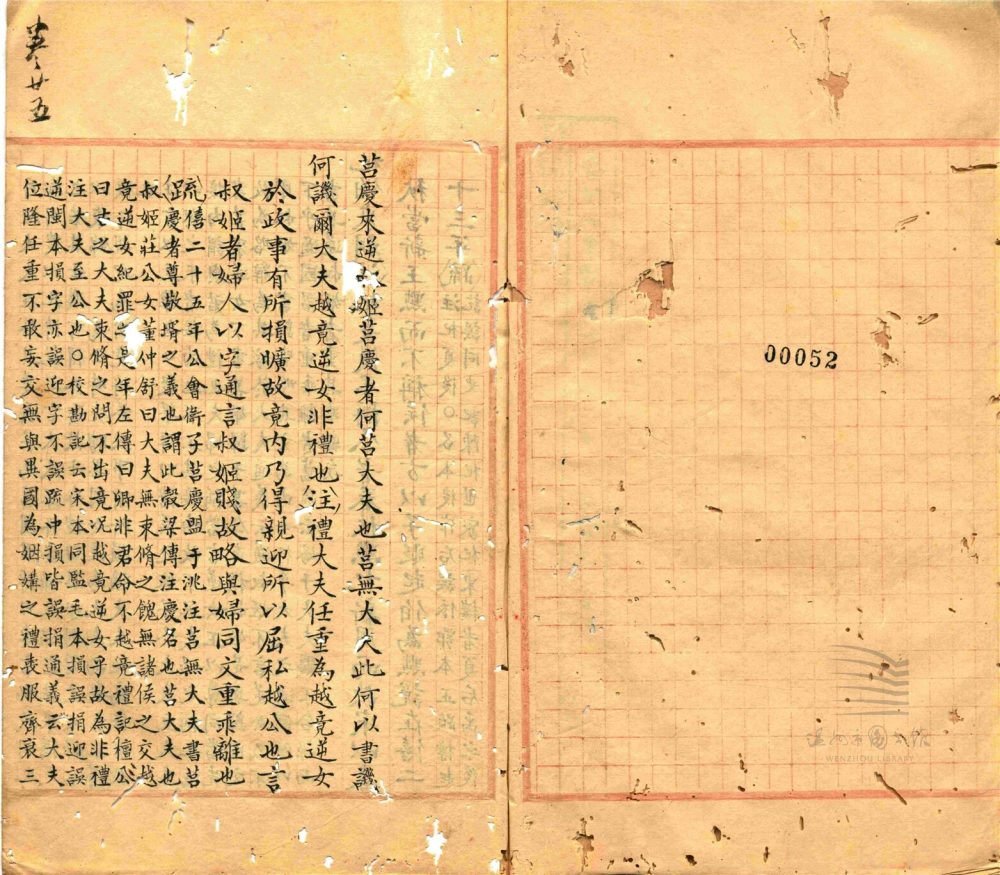 00052
WENZHOU LIBRARY
卷廿五
莒慶來逆叔姬莒慶者何莒大夫也莒無大夫此何以書譏
何譏爾大夫越竟逆女非禮也注禮大夫任重為越竟逆女
於政事有所損曠故竟內乃得親迎所以屈私越公也言
叔姬者婦人以字通言叔姬賤故略與婦同文重乖離也
疏僖二十五年公會衞子莒慶盟于洮注莒無大夫書莒
慶者尊敬壻之義也謂此穀梁傳注慶名也莒大夫也
叔姬莊公女董仲舒曰大夫無束脩之餽無諸侯之交越
竟逆女紀罪之是年左傳曰卿非君命不越竟禮記檀公
曰古之大夫束脩之問不出竟况越竟逆女乎故為非禮
注大夫至公也〇校勘記云宋本同監毛本損誤捐迎誤
逆閩本損字亦誤迎字不誤疏中損皆誤捐通義云大夫
位隆任重不敢妄交無與異國為姻媾之禮喪服齊衰三